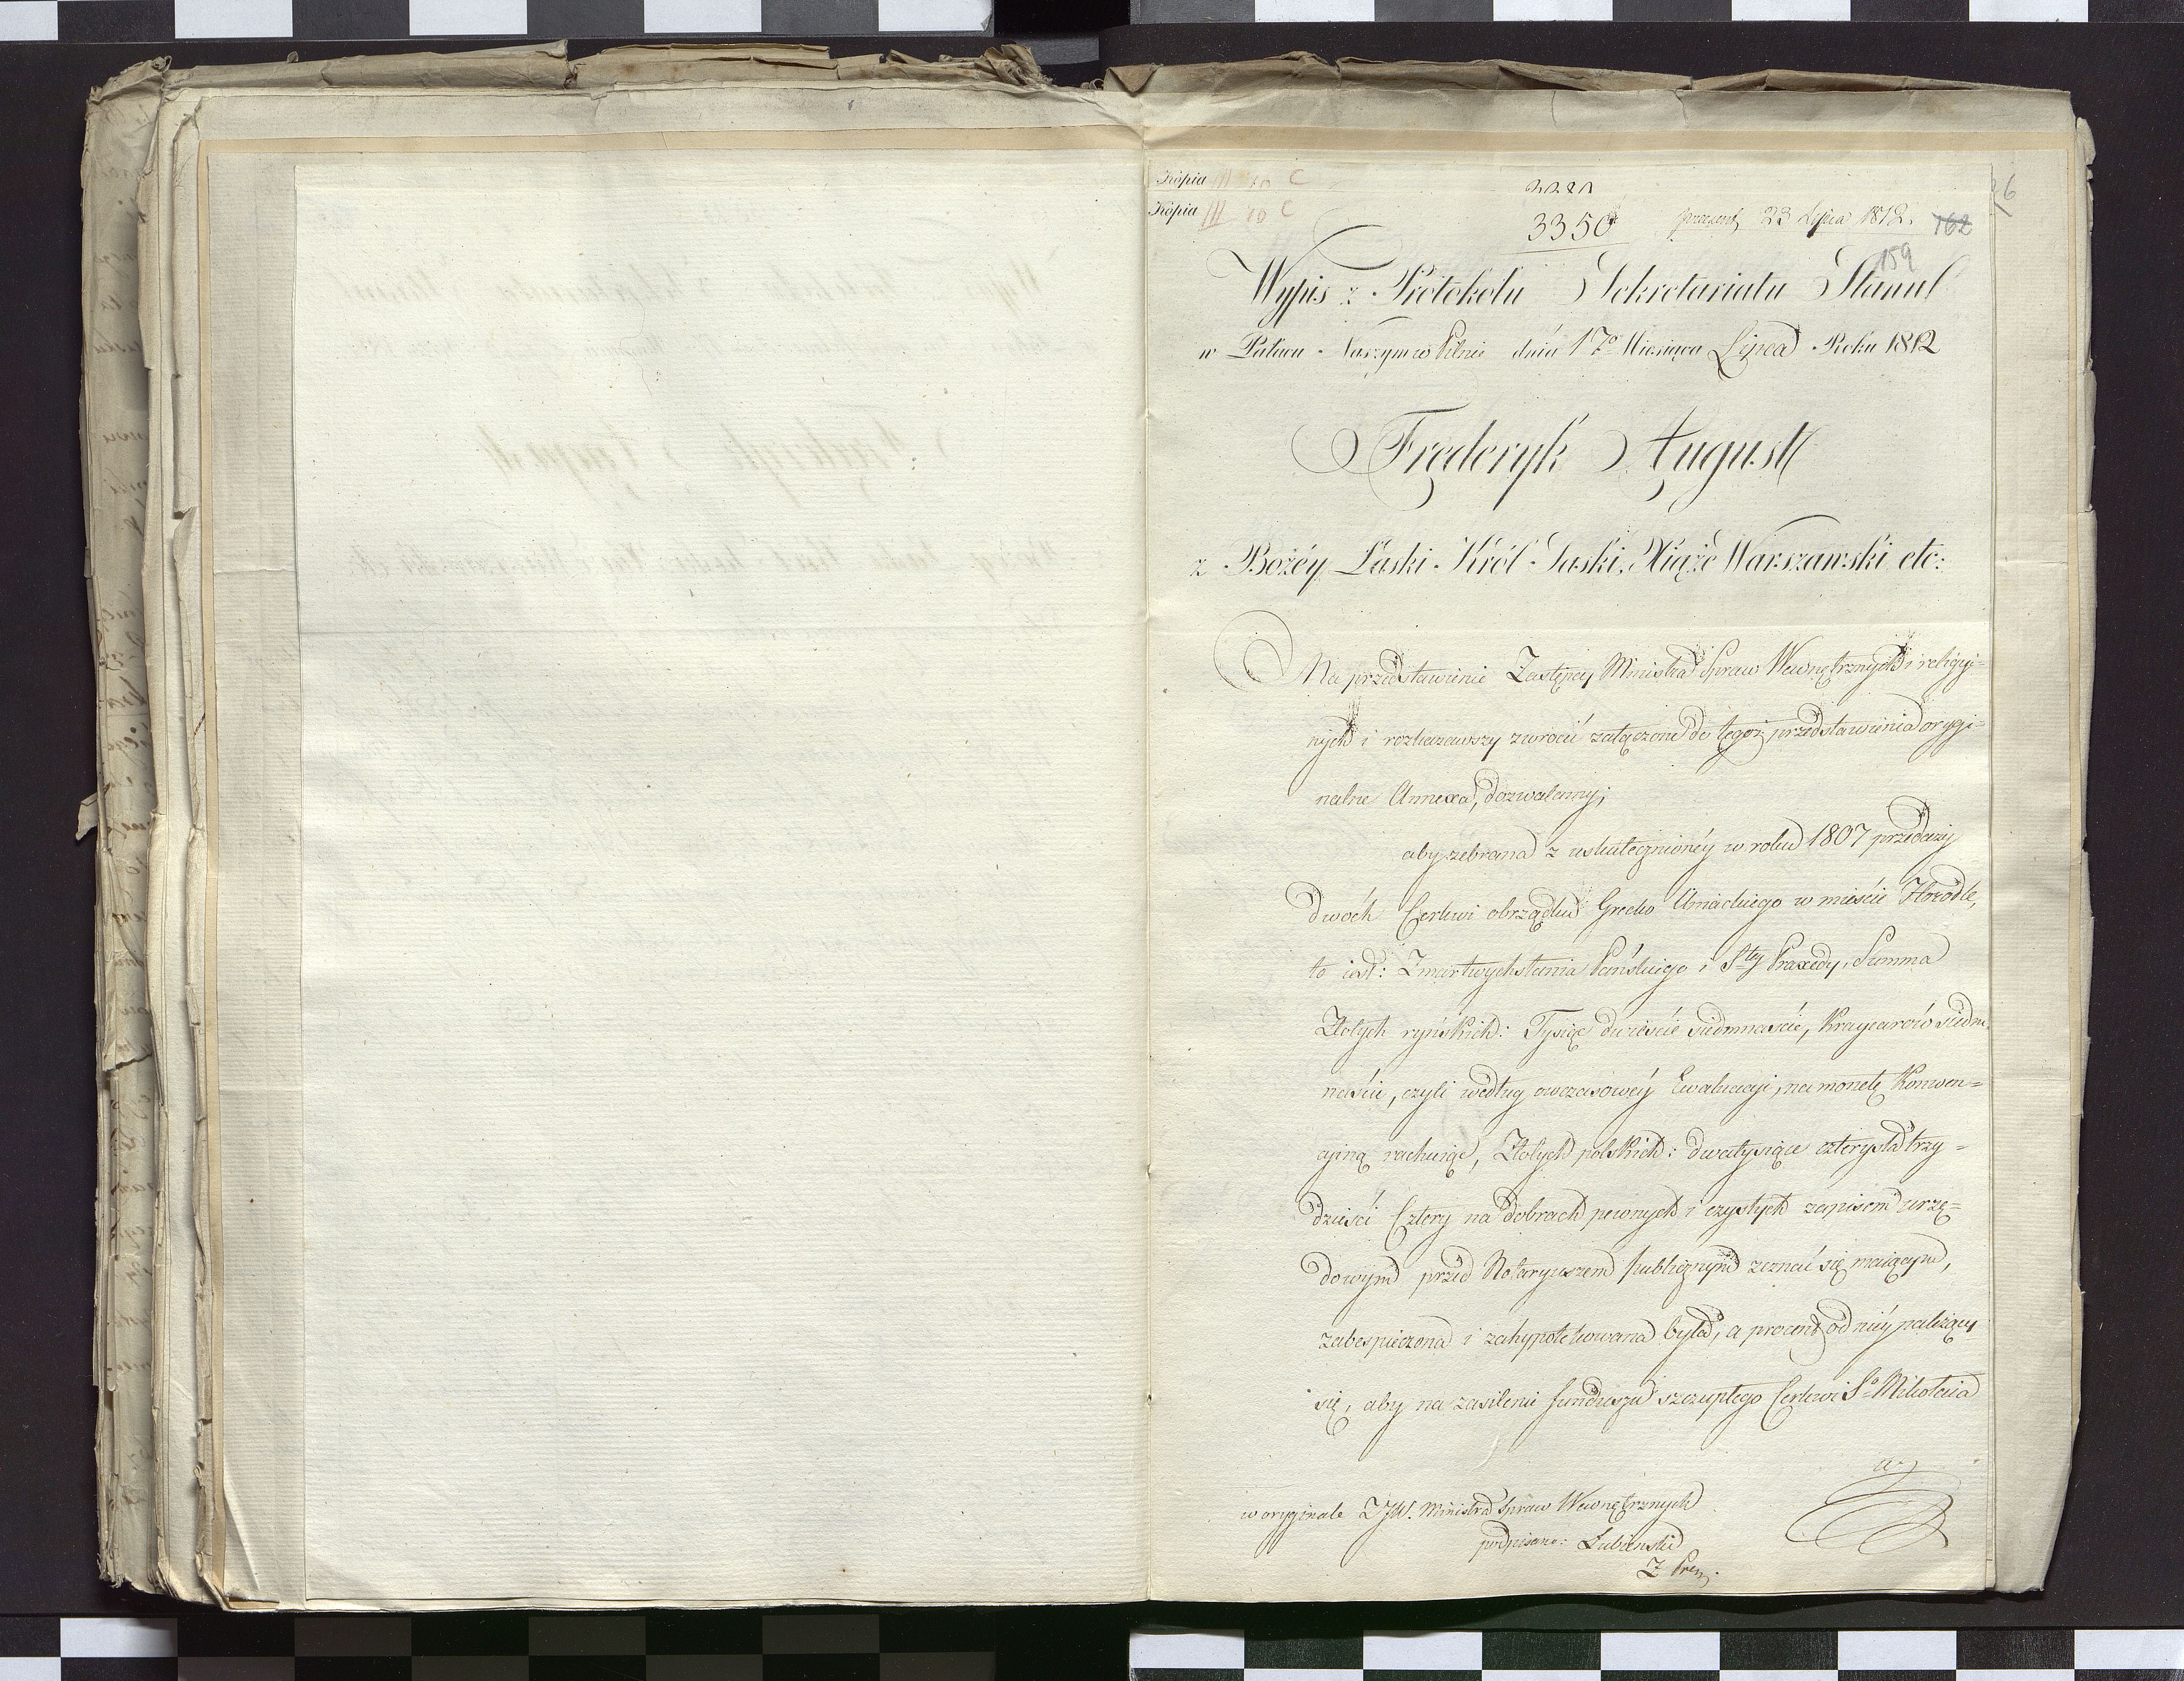 Kopia III 10 C
Kopia III 10 C
3350
praesent. 23 Lipca 1812.
162
159
Wypis z Protokołu Sekretariatu Stanu
w Pałacu Naszym w Pilnic dnia 17º Miesiąca Lipca Roku 1812
Fryderyk August
z Bożéy Łaski Król Saski, Xiąże Warszawski etc:
Na przedstawienie Zastępcy Ministra Spraw Wewnętrznych i religiy=
nych i rozkazawszy zwrócić załączone do tegoż przedstawienia orygi=
nalne Annexa, dozwalamy;
aby zebrana z uskutecznionéy w roku 1807 przedaży
dwóch Cerkwi obrządku Grecko Uniackiego w mieście Horodle,
to iest: Zmartwychstania Pańskiego i Stey Praxedy, Summa
Złotych ryńskich: Tysiąc dwieście siedmnaście, Kraycarów siedm=
naście, czyli według owczasowéy Ewaluacyi, na monetę Konwen=
cyiną rachuiąc, Złotych polskich: dwatysiące czterysta trzy=
dzieści Cztery na dobrach pewnych i czystych zapisem urzę=
dowym przed Notaryuszem publicznym zeznać się maiącym,
zabespieczona i zahypotekowana była, a procent od niéy należący
się, aby na zasilenie funduszu szczupłego Cerkwi Sgo Mikołaia
w oryginale JW. Ministra Spraw Wewnętrznych
podpisano: Łubieński
Z Prez.